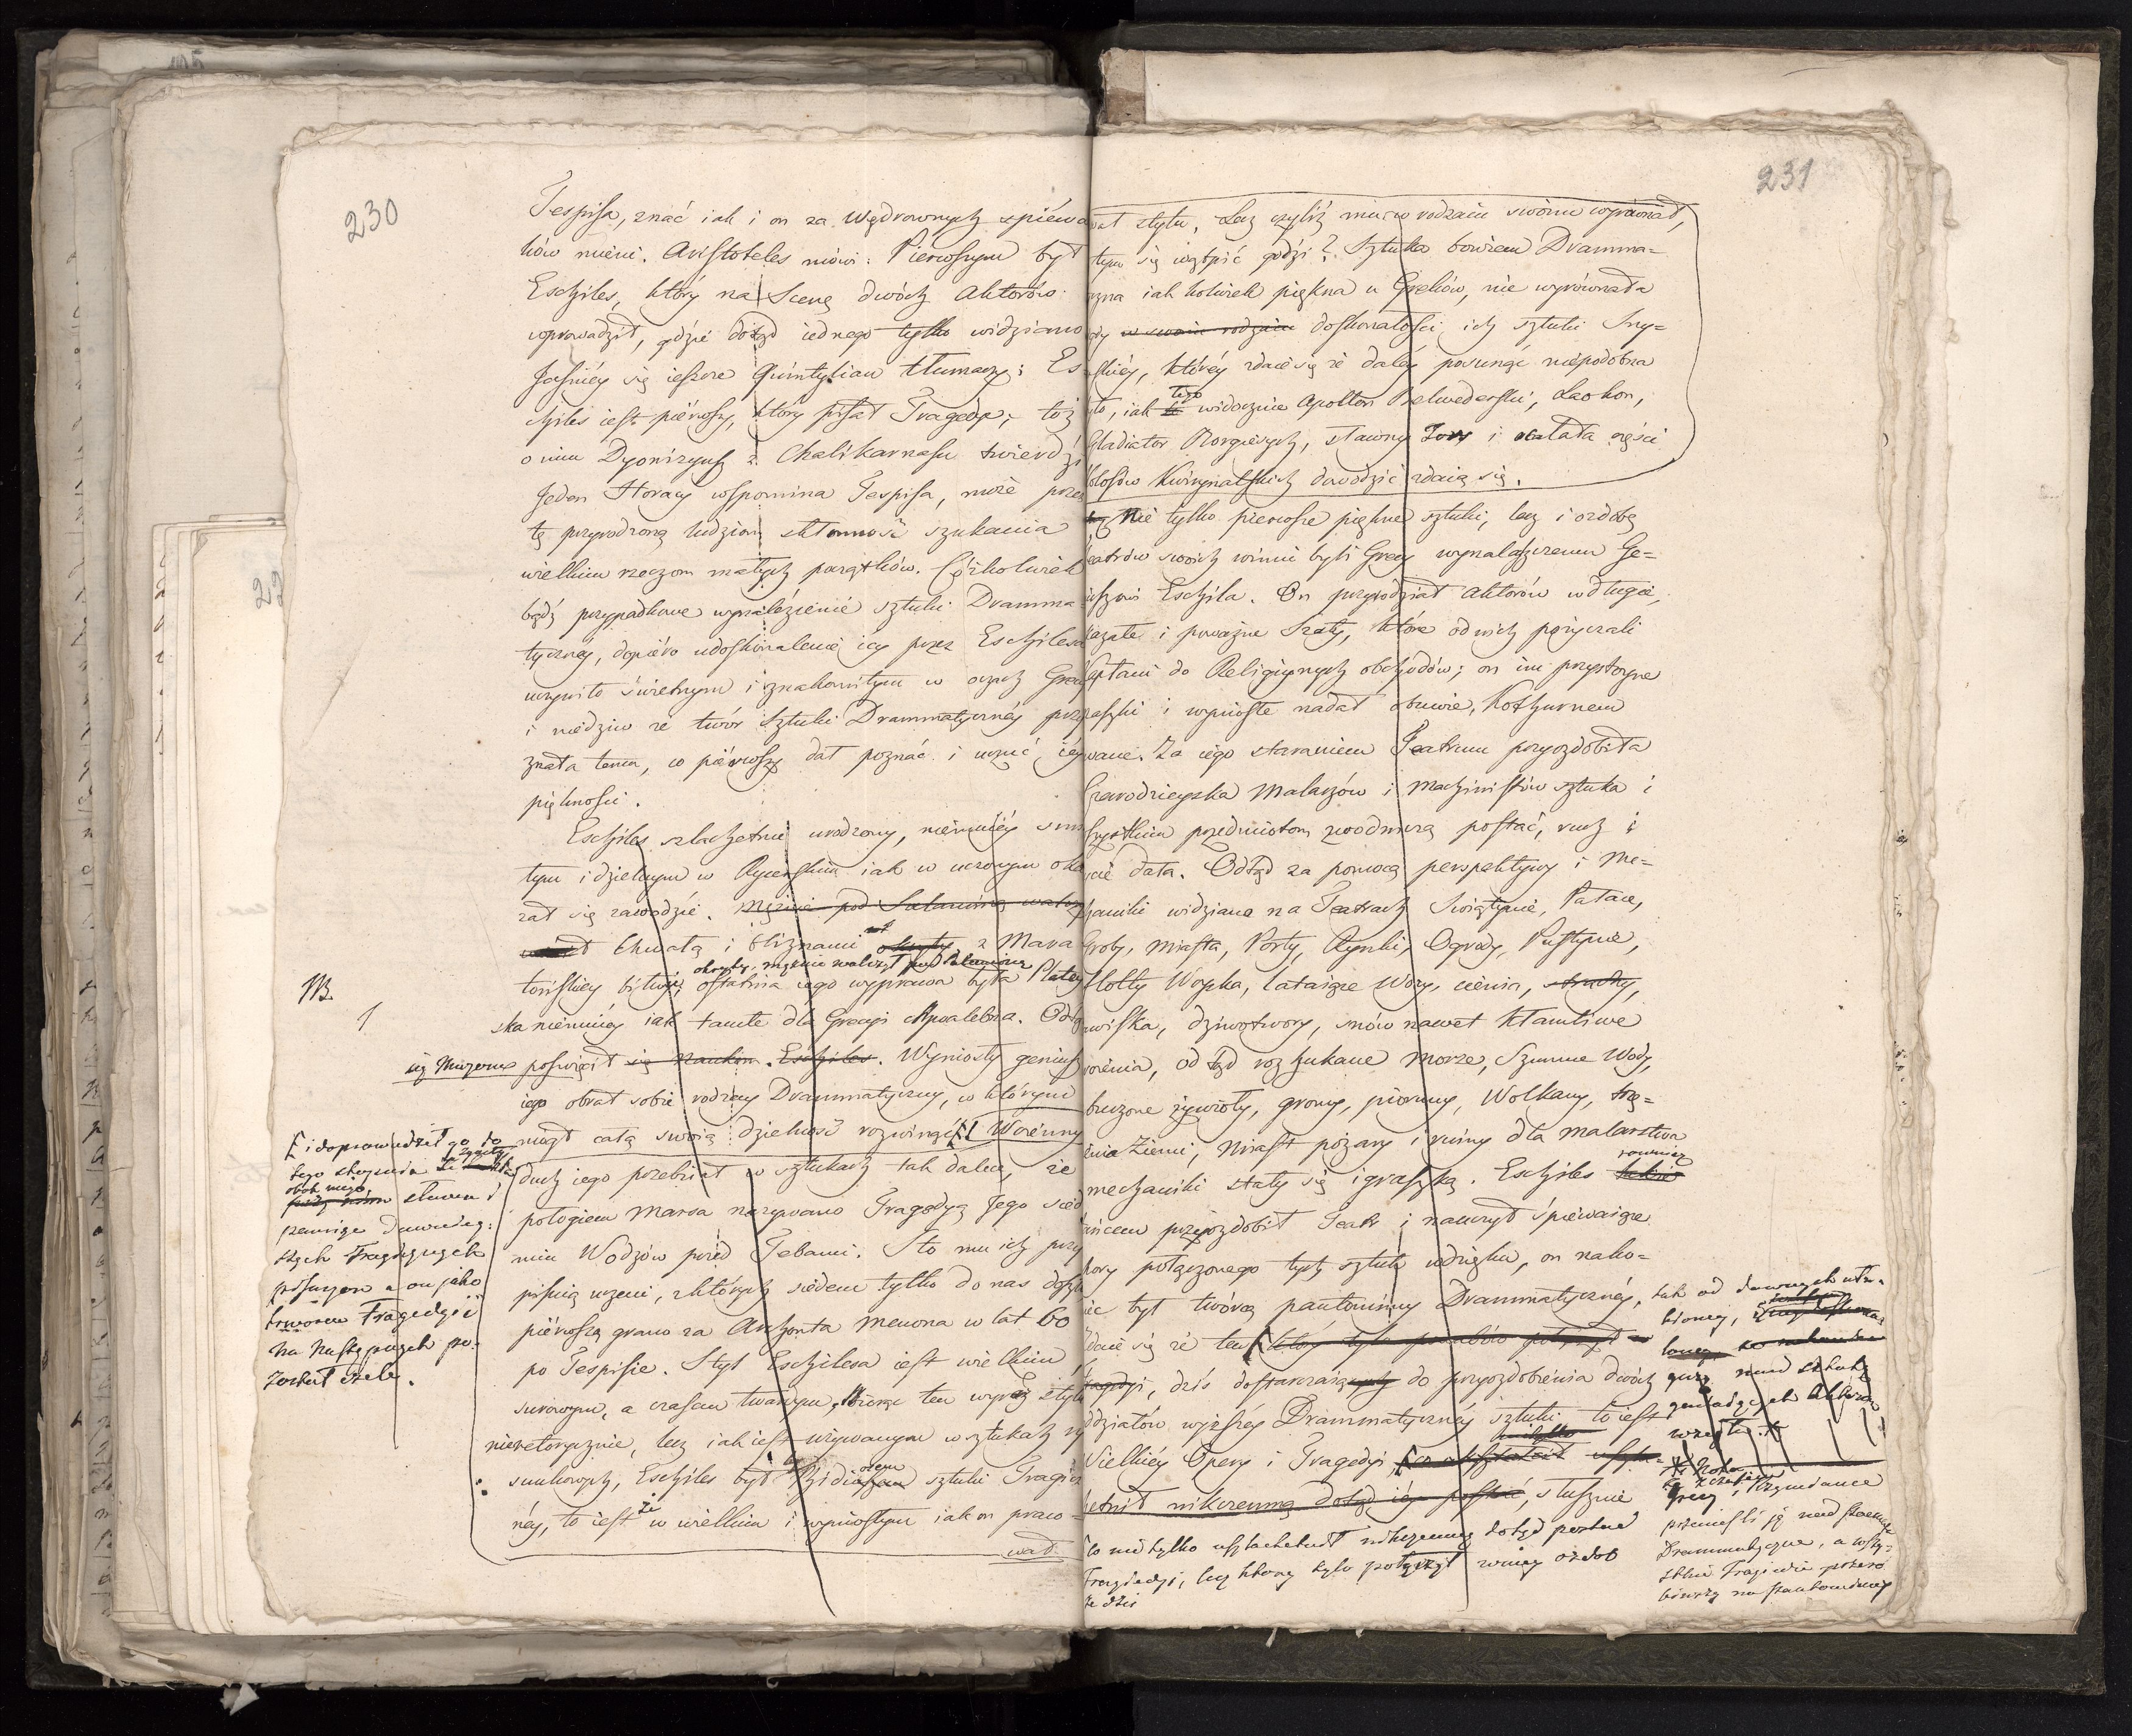 230
Tespisa, znać iak i on za Wędrownych spiéwa
ków mieni. Aristoteles mówi: Pierwszym był
Eschiles, który na Scenę dwóch Aktorów
wprowadził, gdzie dotąd iednego tylko widziano
Jaśniéy się ieszcze Quintylian tłumaczy: Es
chiles iest piérwszy, który pisał Tragedye; toż
o nim Dyonizyusz z Chalikarnasu twierdzi
Jeden Horacy wspomina Tespisa, może przez
tę przyrodzoną ludziom skłonność szukania
wielkim rzeczom małych początków. Cóżkolwiek
bądź przypadkowe wynalézienie sztuki Dramma
tyczney, dopiéro udoskonalenie iey przez Eschilesa
uczyniło świetnym i znakomitym w oczach Grecyi
i niedziw że twór Sztuki Drammatycznéy przy
znała temu, co piérwszy dał poznać i uczuć iéy
piękności.
Eschiles szlachetnie urodzony, niemniéy
tym i dzielnym w Rycerskim iak w uczonym oka
zał się zawodzie. Mężnie pod Salaminą walczył
Chwałą i bliznami okryty z Mara
okryty, mężnie walczył pod Salaminą
tońskiey bitwy; ostatnia iego wyprawa była Platey
ska niemniéy iak tamte dla Grecyi chwalebna. Odtąd
NB.
1
się Muzom poświęcił się Naukom Eschiles. Wyniosły geniusz
iego obrał sobie rodzay Drammatyczny, w którym
mógł całą swoią dzielność rozwinąć. Woienny
duch iego przebiiał w sztukach tak dalece, że
połogiem Marsa nazywano Tragedyą Jego sied
miu Wodzów pod Tebami. Sto mu ich przy
pisuią uczeni, z których siedem tylko do nas doszło
piérwszą grano za Archonta Menona w lat 60
po Tespisie. Styl Eschilesa iest wielkim
surowym, a czasem twardym, biorąc ten wyraz stylu
nieretorycznie, lecz iak iest używanym w sztukach ry
sunkowych, Eschiles był Fidiaszem sztuki Tragicz
néy, to iest że w wielkim i wyniosłym iak on praco
wał
i doprowadził go do
tego stopnia
obok niego
dawniey
szych Tragicznych
pisarzow a on jako
tworca Tragedyi
na następnych po
został czele.
231
wał stylu. Lecz czyliż mu w rodzaiu swoim wyrównał,
tym się wątpić godzi? Sztuka bowiem Dramma=
czna iak kolwiek piękna u Greków, nie wyrównała
w swoim rodzaiu doskonałości ich sztuki Sny=
cerskiéy, któréy zdaie się że daléy posunąć niepodobna
to, iak tego widocznie Apollon Belwederski, Laokon,
Gladiator Borgieskych, sławny Tors i ocalała części
Kolosów Kwirynalskich dowodzić zdaią się.
Nie tylko pierwsze piękne sztuki, lecz i ozdobę
teatrów swoich winni byli Grecy wynalazczemu Ge=
niuszowi Eschila. On przyodział Aktorów w długie,
i poważne Szaty, które od nich pożyczali
Kapłani do Religiynych obchodów; on im przystoyne
maszki i wyniosłe nadał obuwie, Kothurnem
zwane. Za iego staraniem Teatrum przyozdobiła
Czarodzieyska Malarzów i Machinistów sztuka i
wszystkim przedmiotom zwodniczą postać, ruch i
życie dała. Odtąd za pomocą perspektywy i Me=
chaniki widziano na Teatrach Swiątynie, Pałace,
Groby, Miasta, Porty, Rynki, Ogrody, Pustynie,
Floty Woyska, lataiące Wozy, cienia, strachy,
ziawiska, dziwotwory, snów nawet kłamliwe
, od tąd rozhukane Morze, Szumne Wody,
burzone żywioły, gromy, pioruny, Wolkany, trzę=
sienia Ziemi, Miast pożary i ruiny dla malarstwa
mechaniki stały się igraszką. Eschiles rownież
tańcem przyozdobił Teatr i nauczył śpiéwaiące
Chory połączonego tych sztuk wdzięku, on nako=
niec był twórcą pantomimy Drammatycznéy,
zdaie się że ten
Tragedyi, dziś dostarczaiący do przyozdobienia dwóch
oddziałów wyższéy Drammatycznéy sztuki to iest
Wielkiéy Opery i Tragedyi,
nikczemną dotąd iéy postać, słusznie
Co nietylko uszlachetnił nikczemną dotąd postać
Tragiedyi, lecz ktory tyle połączył w niey ozdob
że dziś
tak od dawnych ulu=
bioney,
Rzymianie
przenieśli ją nad
Drammatyczne, a wszy=
stkie Tragedie przero
biwszy na pantomimy